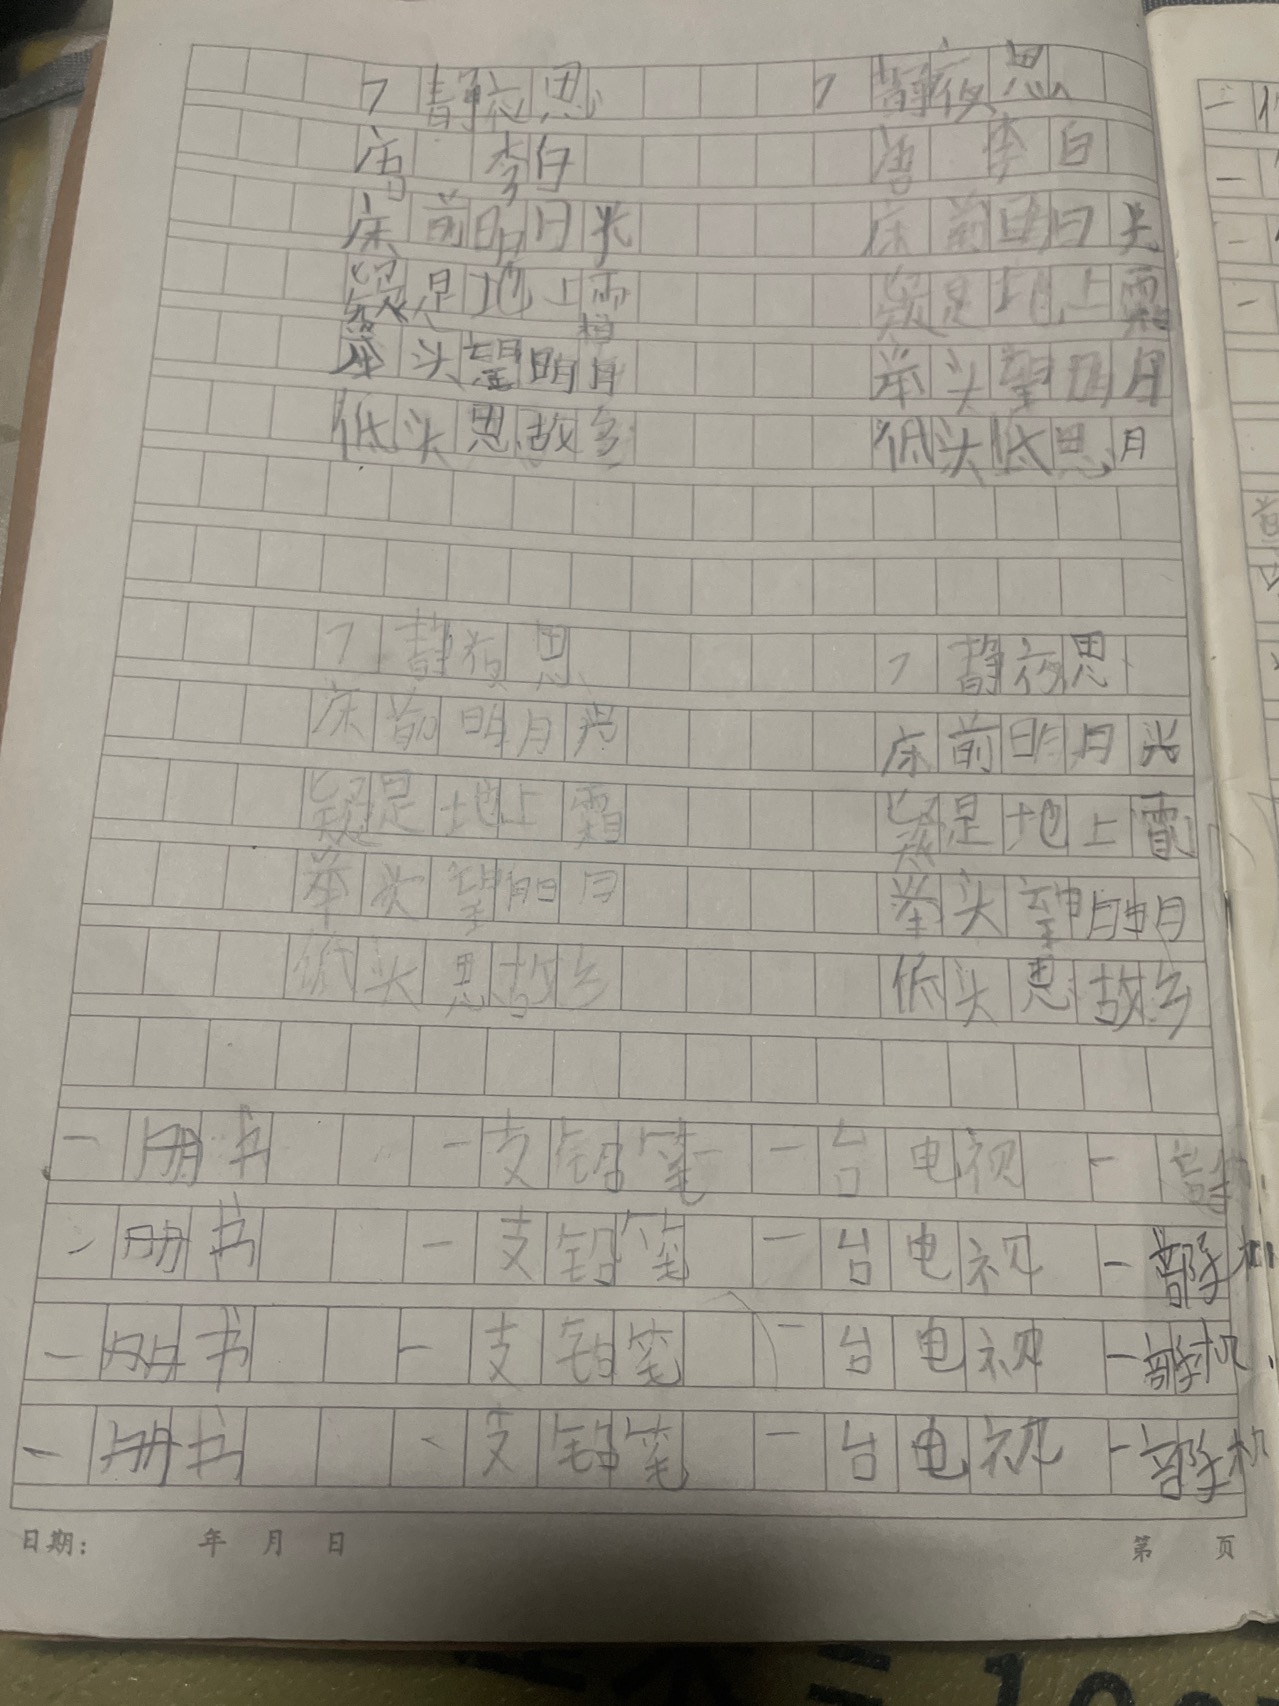 7 静夜思 7 静夜思
唐 李白 唐 李白
床前明日光 床前明日光
疑是地上霜 疑是地上霜
举头望明月 举头望明月
低头思故乡 低头低思月
7 静夜思 7 静夜思
床前明月光 床前明月光
疑是地上霜 疑是地上
举头望明月 举头望明月
低头思故乡 低头思故乡
一册书 一支铅笔 一台电视 一部
一册书 一支铅笔 一台电视 一部手机
一册书 一支铅笔 一台电视 一部手机
一册书 一支铅笔 一台电视 一部手机
日期: 年 月 日 第 页